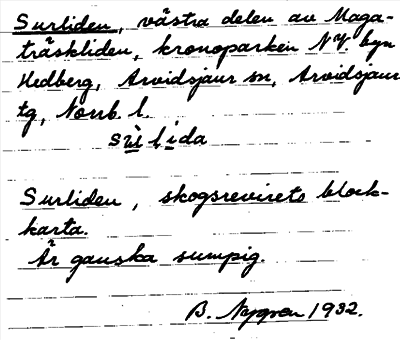 Surliden, västra delen av Maga-
träskliden, kronoparken N.Y. byn
Hedberg, Arvidsjaur sn, Arvidsjaur
tg, Norrb. l.
sùlida
Surliden, skogsrevirets block-
karta.
Är ganska sumpig.
B. Nygren 1932.